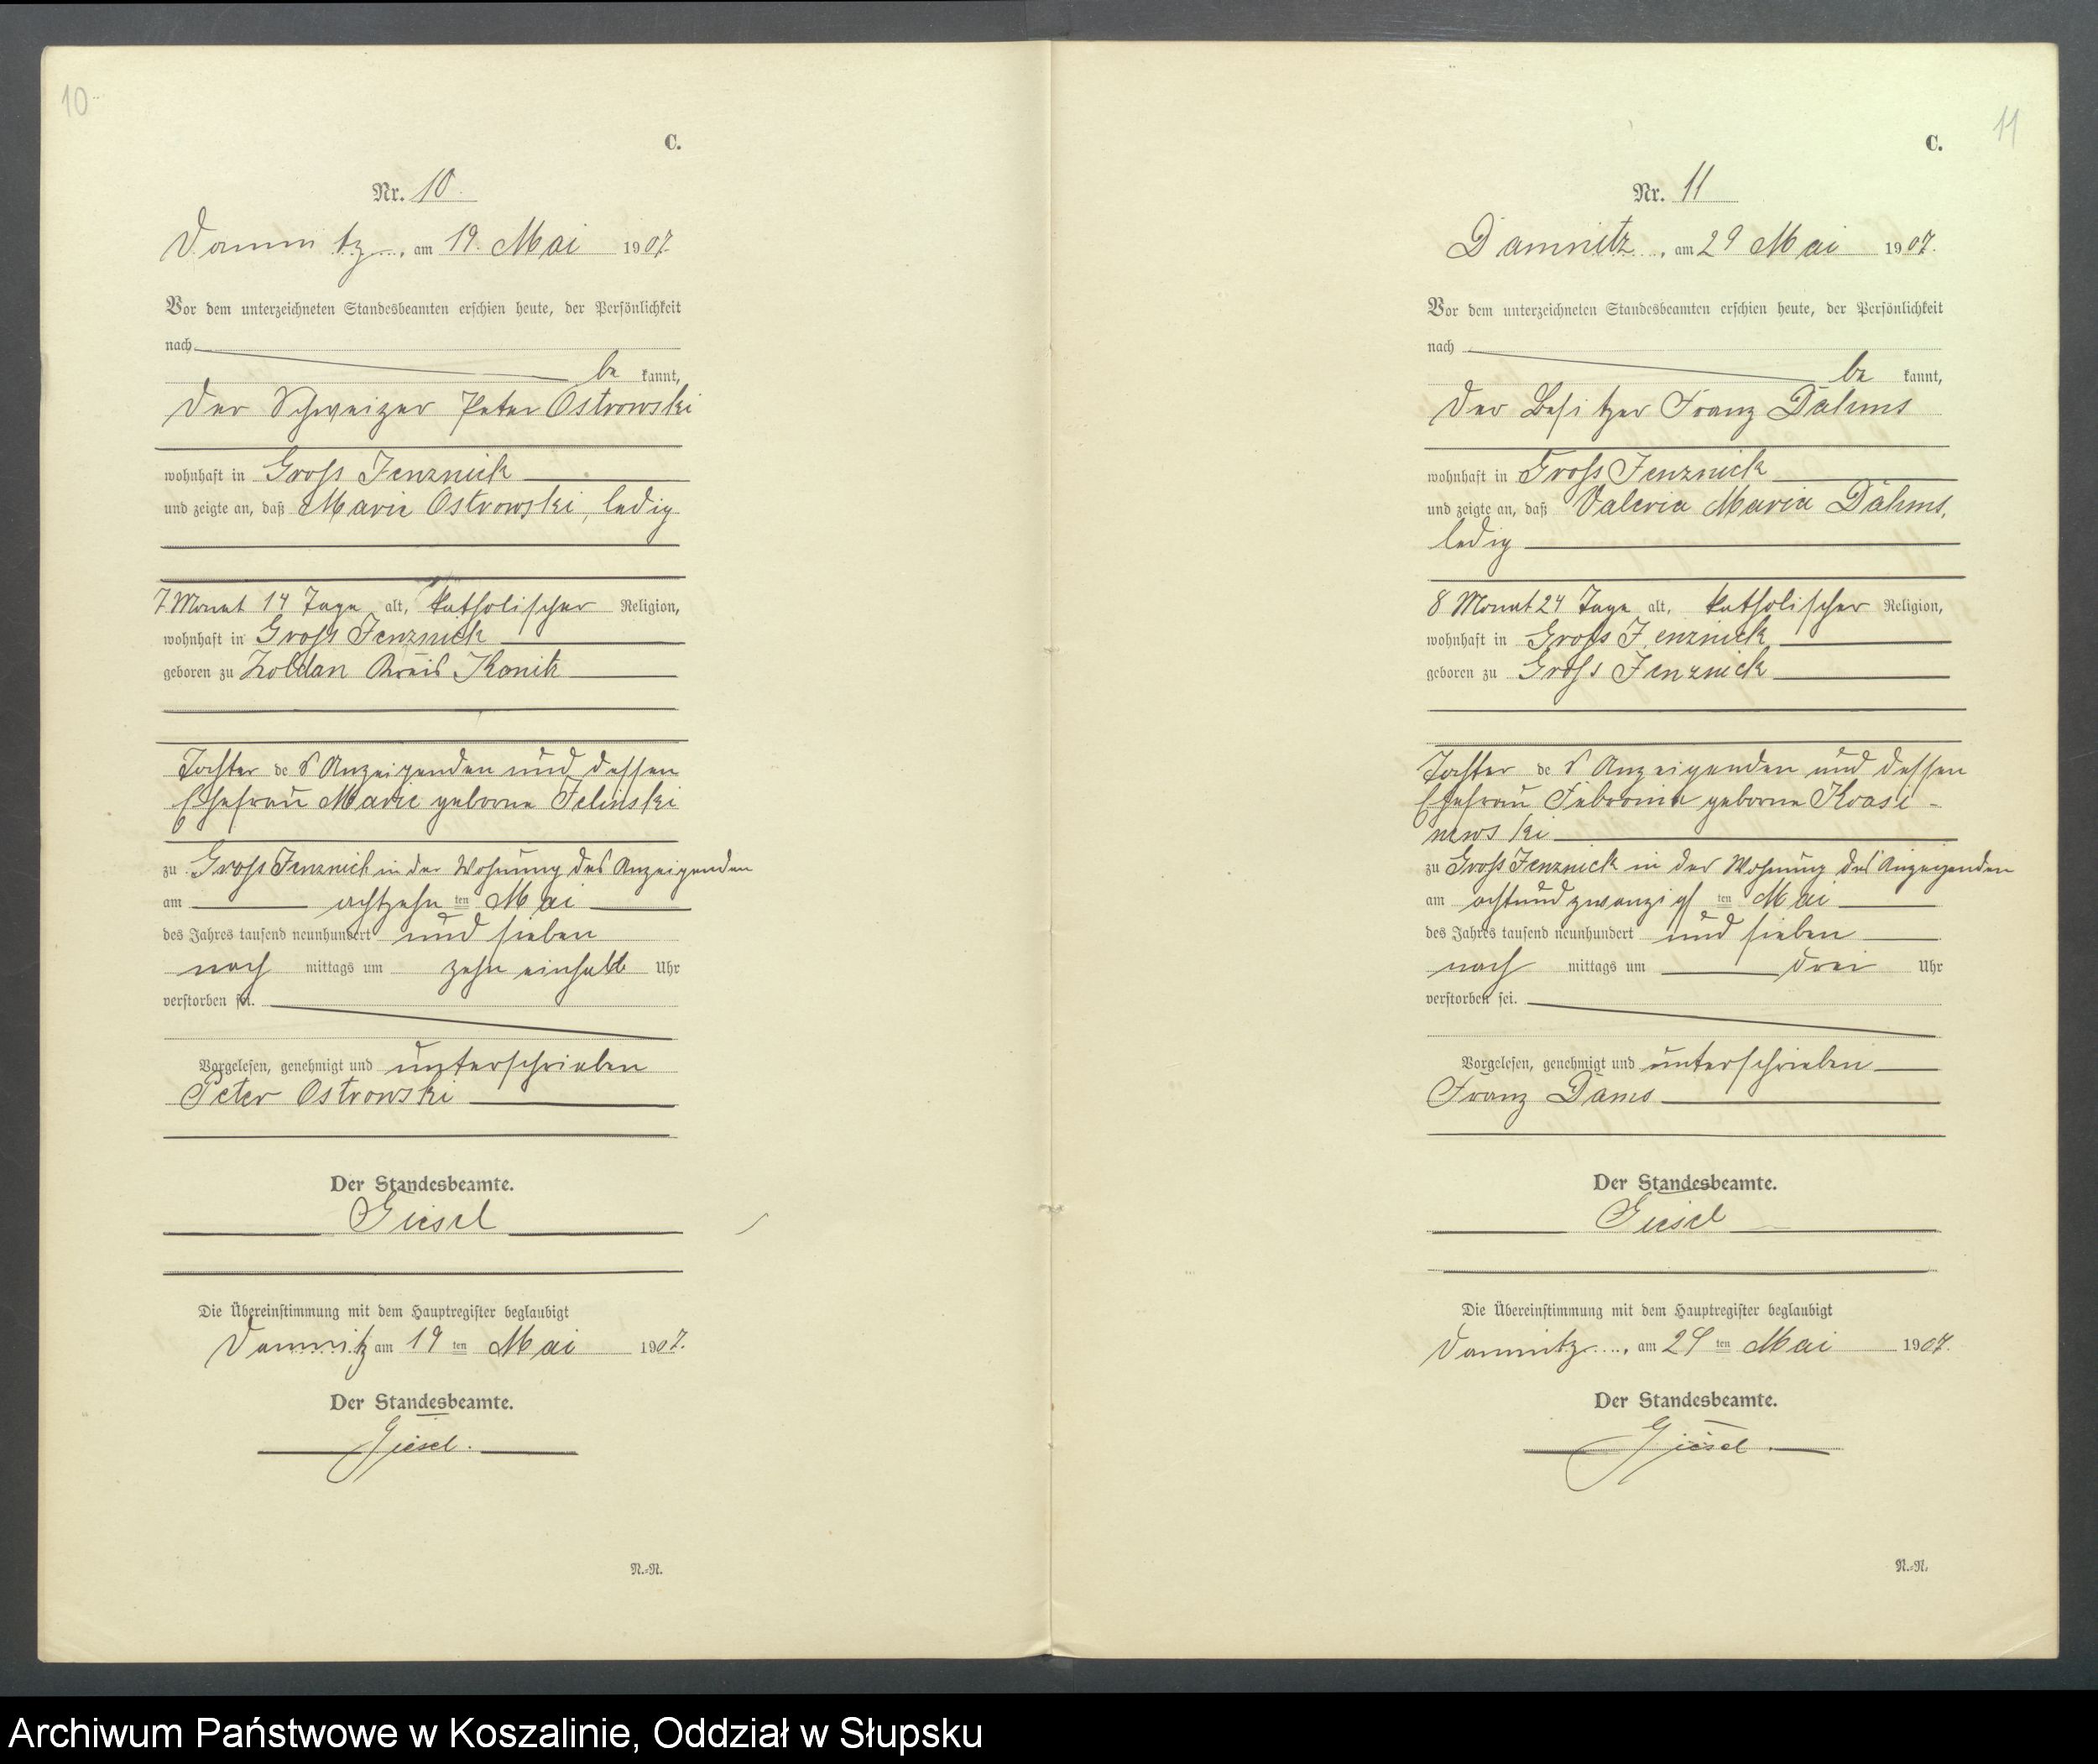 10
C.
Nr. 10
Damnitz, am 19. Mai 1907.
Vor dem unterzeichneten Standesbeamten erschien heute, der Persönlichkeit
nach
be kannt,
der Schweizer Peter Ostrowski
wohnhaft in Gross Jenznick
und zeigte an, daß Marie Ostrowski, ledig
7 Monat 14 Tage alt, katholischer Religion,
wohnhaft in Gross Jenznick
geboren zu Kreis Konitz
Tochter des Anzeigenden und dessen
Ehefrau Marie geborne Jelinski
zu Gross Jenznick in der Wohnung des Anzeigenden
am achtzehn ten Mai
des Jahres tausend neunhundert und sieben
nach mittags um zehn einhalb Uhr
verstorben sei.
Vorgelesen, genehmigt und unterschrieben
Peter Ostrowski
Der Standesbeamte.
Giesel
Die Übereinstimmung mit dem Hauptregister beglaubigt
Damnitz am 19 ten Mai 1907.
Der Standesbeamte.
Giesel.
N.-N.
11
C.
Nr. 11
Damnitz, am 29 Mai 1907.
Vor dem unterzeichneten Standesbeamten erschien heute, der Persönlichkeit
nach
be kannt,
der Besitzer Franz Dahms
wohnhaft in Gross Jenznick
und zeigte an, daß Valeria Maria Dahms,
ledig
8 Monat 24 Tage alt, katholischer Religion,
wohnhaft in Gross Jenznick
geboren zu Gross Jenznick
Tochter des Anzeigenden und dessen
Ehefrau Febronia geborne Krasi-
newski
zu Gross Jenznick in der Wohnung des Anzeigenden
am achtundzwanzigsten Mai
des Jahres tausend neunhundert und sieben
nach mittags um drei Uhr
verstorben sei.
Vorgelesen, genehmigt und unterschrieben
Franz Dams
Der Standesbeamte.
Giesel
Die Übereinstimmung mit dem Hauptregister beglaubigt
Damnitz, am 29 ten Mai 1907.
Der Standesbeamte.
Giesel.
N.-N.
Archiwum Państwowe w Koszalinie, Oddział w Słupsku